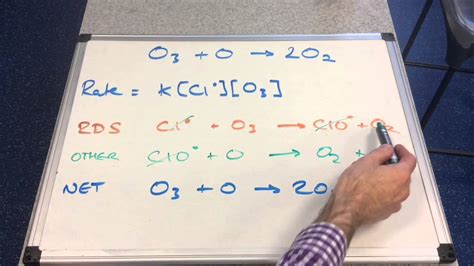 O₃ + O → 2O₂
Rate = K[Cl•][O₃]
RDS Cl• + O₃ → ClO• + O₂
OTHER ClO• + O → O₂ +
NET O₃ + O → 2O